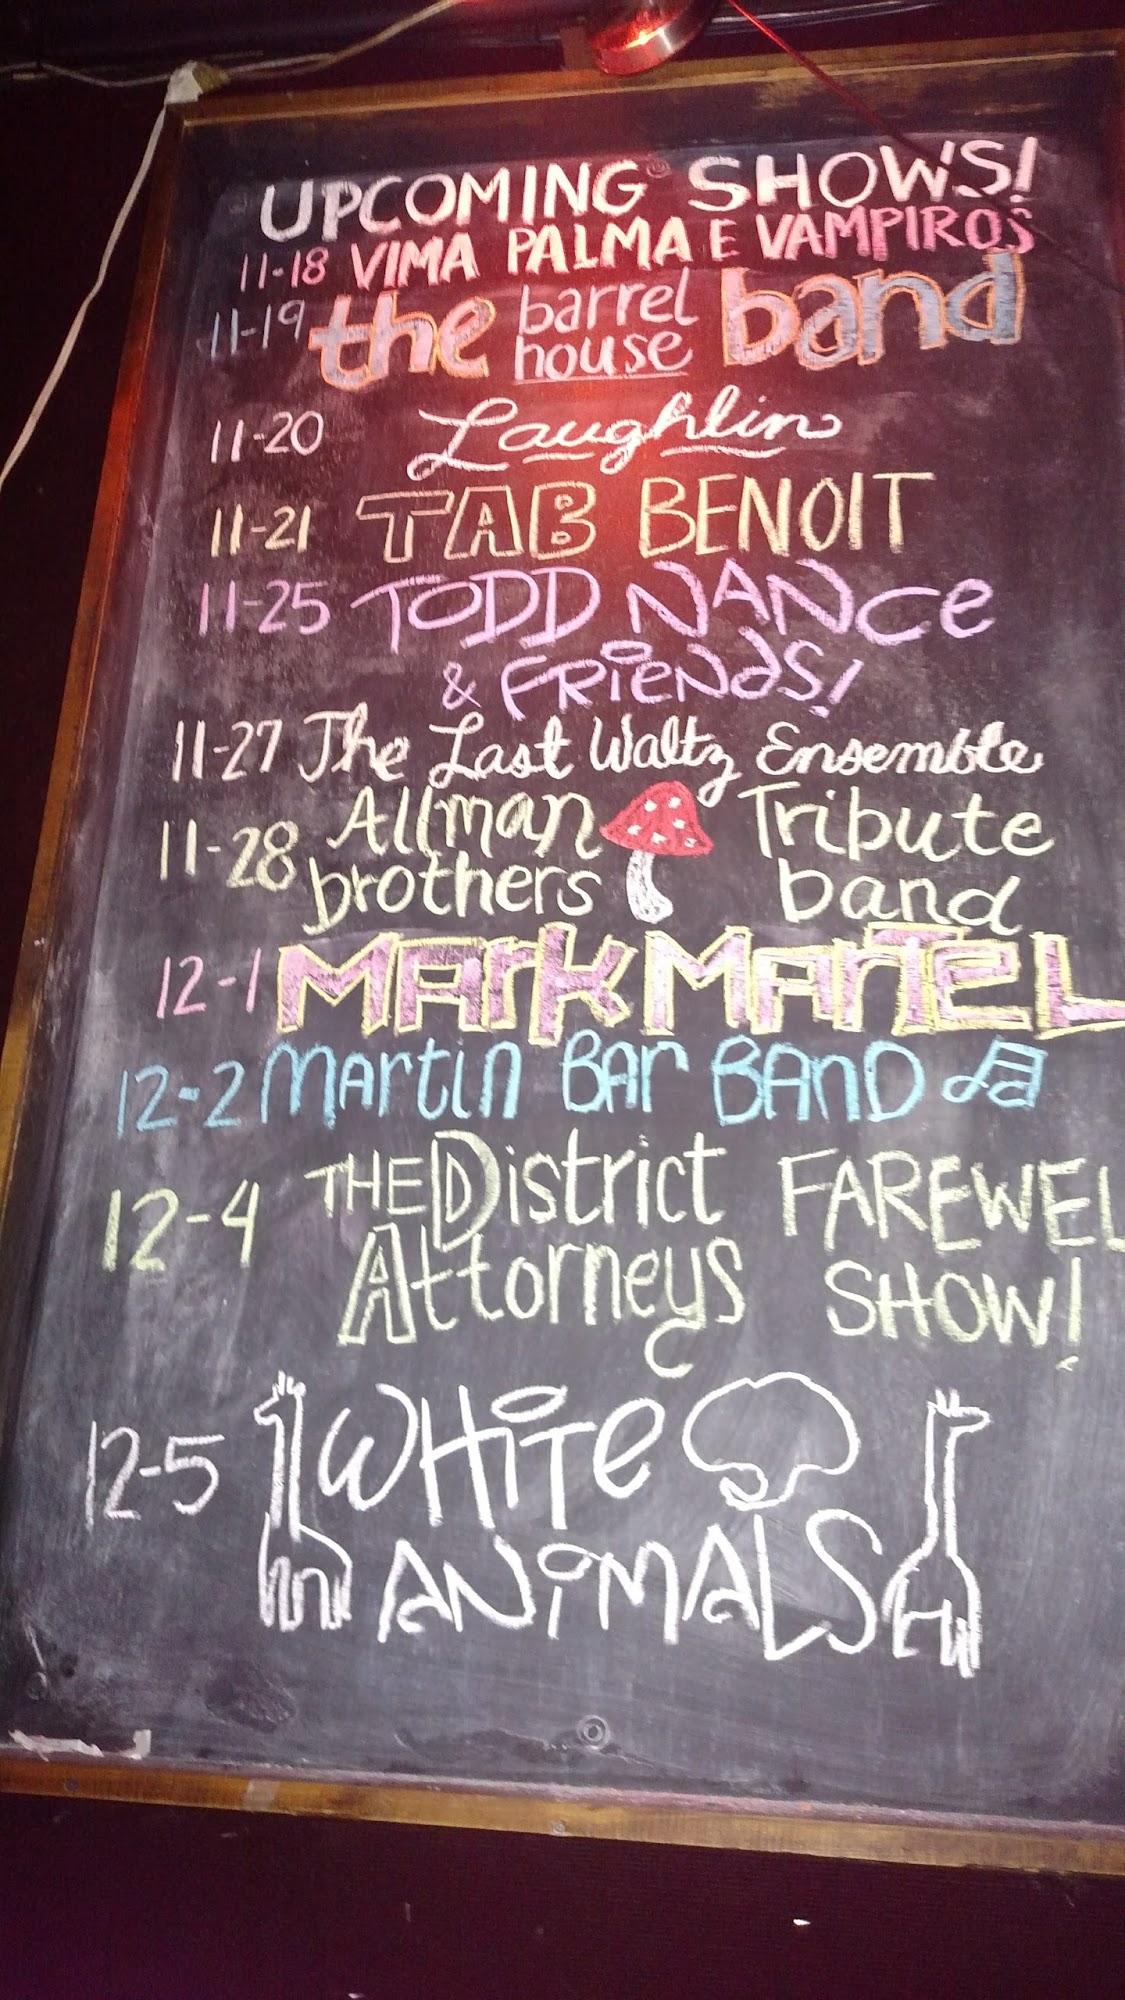 UPCOMING SHOWS!
11-18 VIMA PALMA E VAMPIROS
11-19 the barrel house band
11-20 Laughlin
11-21 TAB BENOIT
11-25 TODD NANCe
& FRiENdS!
11-27 The Last Waltz Ensemble
11-28 Allman brothers Tribute band
12-1 MArk MArTEL
12-2 MArtin BAr BAND
12-4 THE District Attorneys FAREWEL SHOW!
12-5 WHiTe
ANiMALS